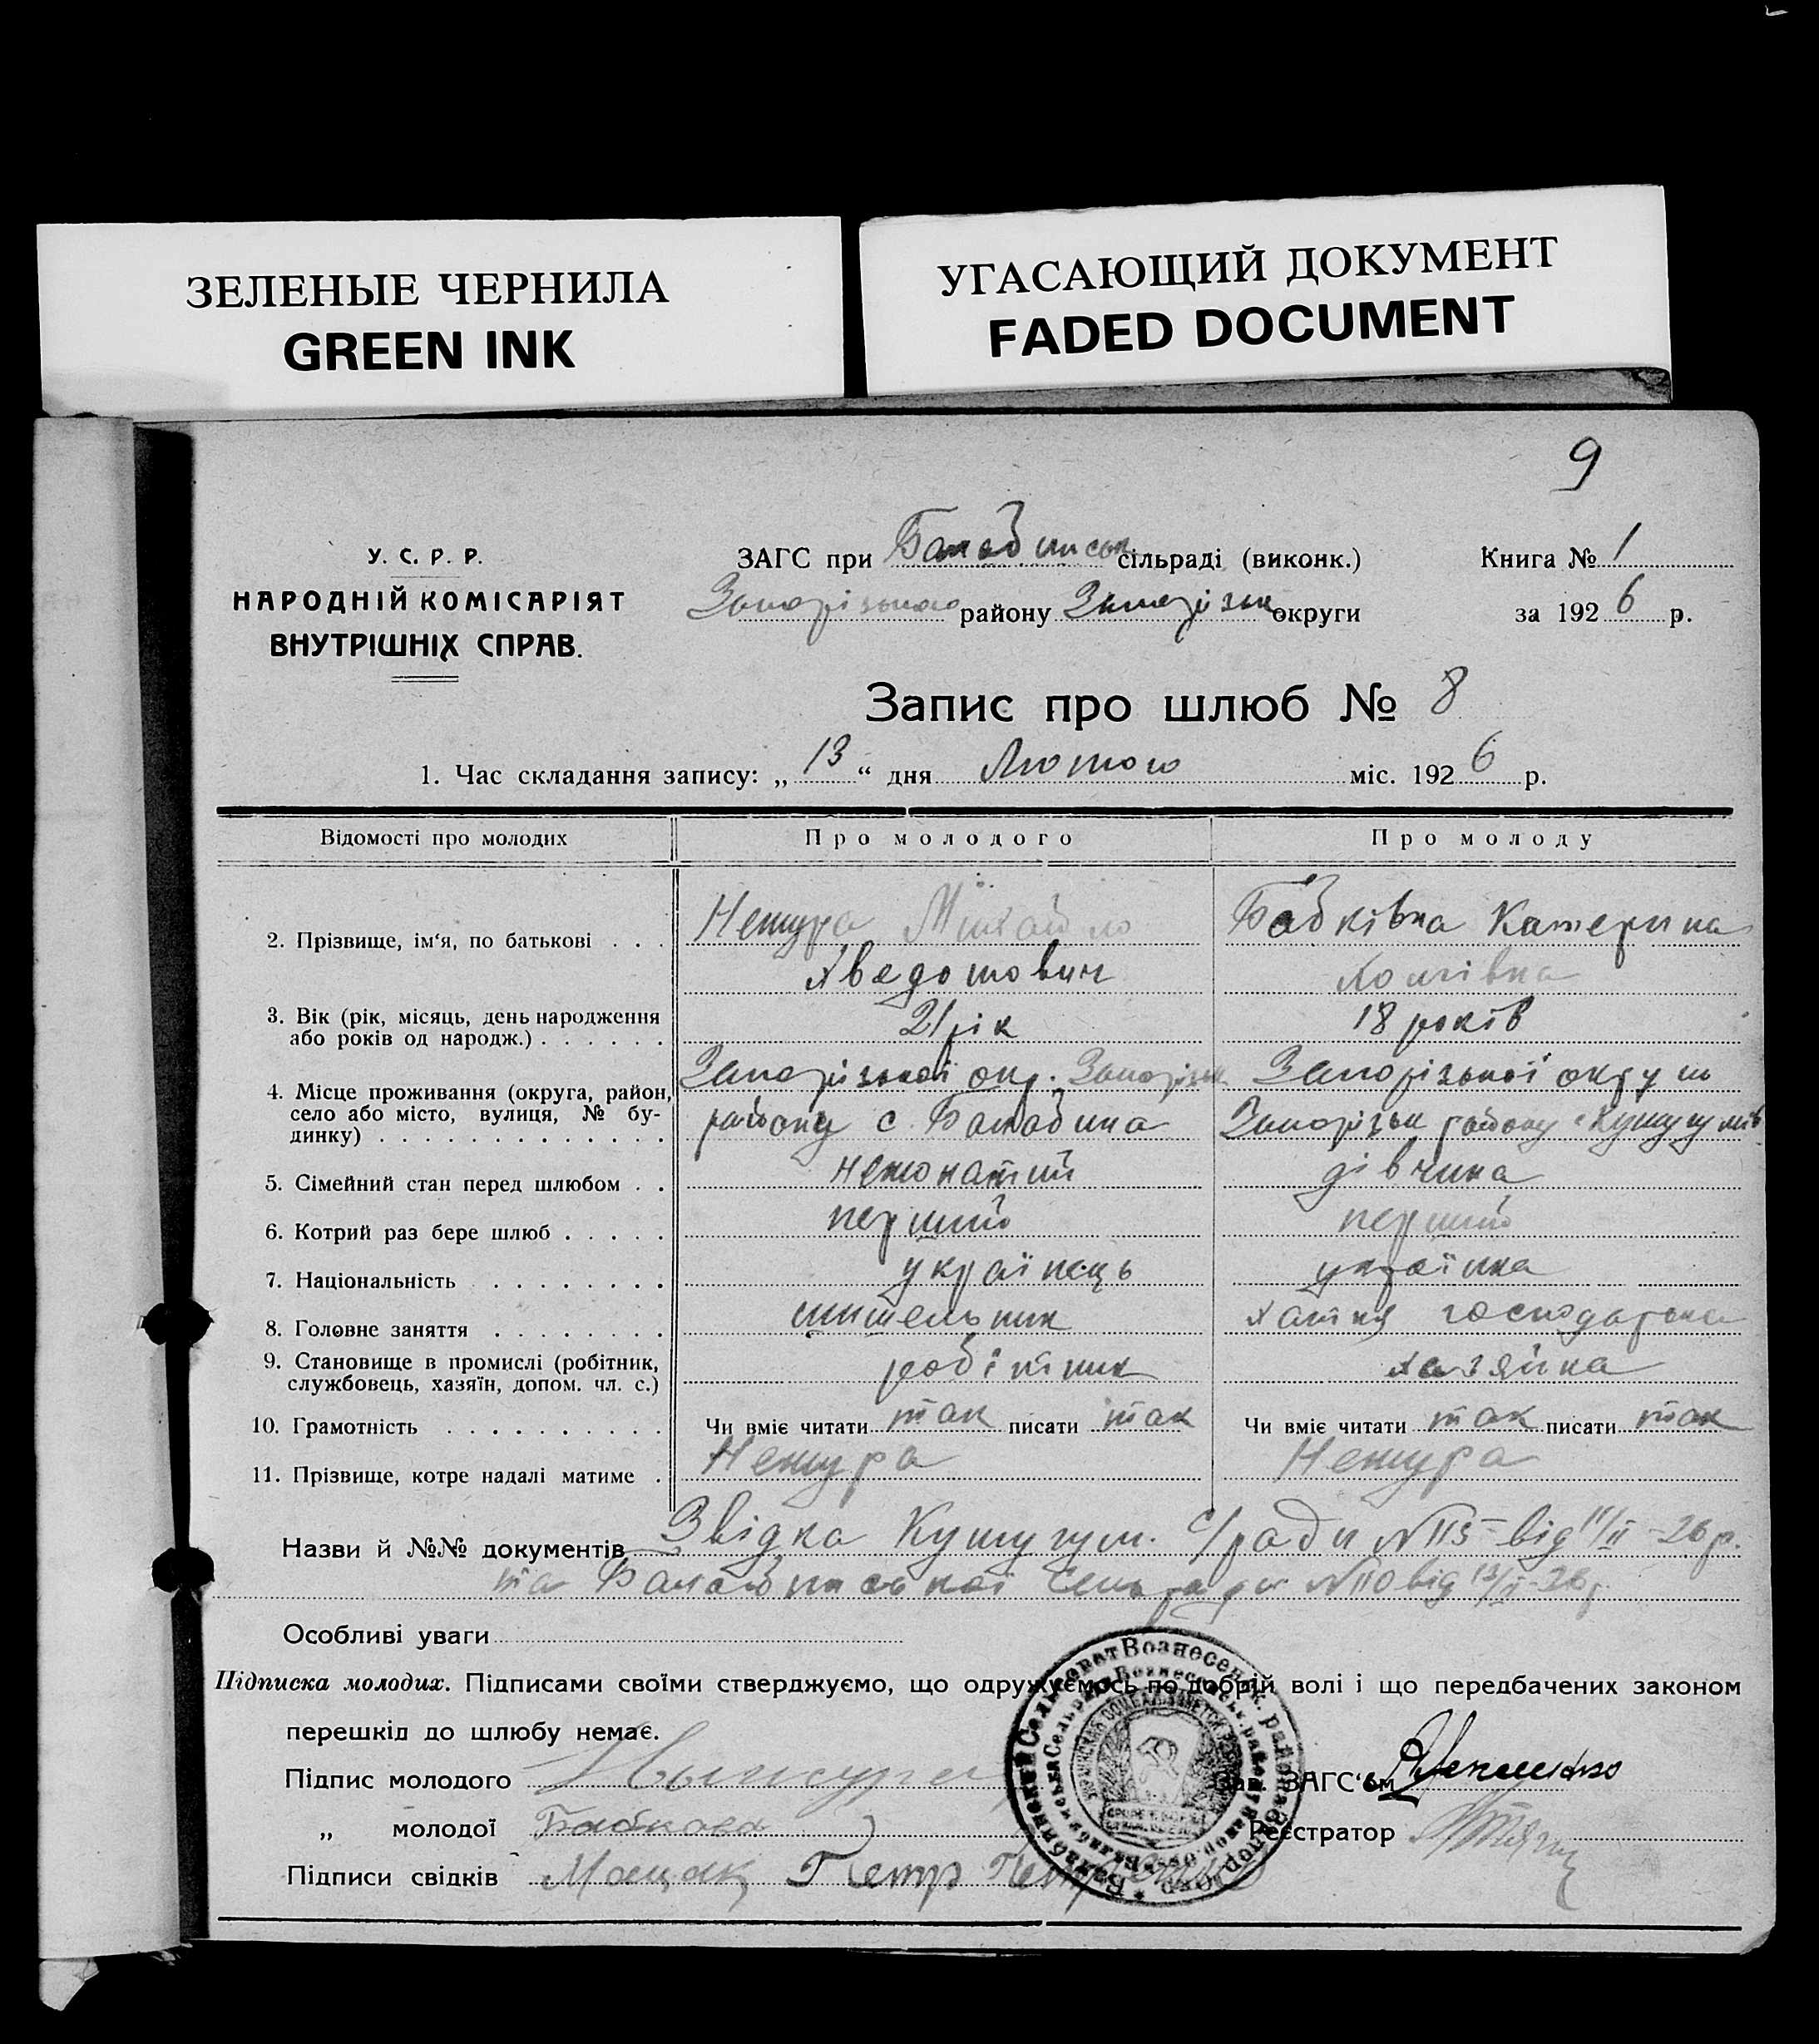 ЗЕЛЕНЫЕ ЧЕРНИЛА
GREEN INK
УГАСАЮЩИЙ ДОКУМЕНТ
FADED DOCUMENT
9
У. С. Р. Р.
НАРОДНІЙ КОМІСАРІЯТ
ВНУТРІШНІХ СПРАВ.
ЗАГС при Балабинськ сільраді (виконк.)
Запорізького району Запорізьк округи
Книга № 1
за 1926 р.
Запис про шлюб № 8
1. Час складання запису: „13“ дня Лютого міс. 1926 р.
Відомості про молодих Про молодого Про молоду
2. Прізвище, ім‘я, по батькові . . . Нешура Михайло Бабківна Катерина
Хведотович Хомівна
3. Вік (рік, місяць, день народження
або років од народж.) . . . . . . 21 рік 18 років
4. Місце проживання (округа, район, Запорізької окр. Запорізьк Запорізької округи
село або місто, вулиця, № бу- району с. Балабина Запорізьк району с Кушугумів
динку) . . . . . . . . . . . . .
5. Сімейний стан перед шлюбом . . нежонатий дівчина
6. Котрий раз бере шлюб . . . . . перший перший
7. Національність . . . . . . . . українець українка
8. Головне заняття . . . . . . . . хатня господарька
9. Становище в промислі (робітник, робітник хазяйка
службовець, хазяїн, допом. чл. с.)
10. Грамотність . . . . . . . . . . Чи вміє читати так писати так Чи вміє читати так писати так
11. Прізвище, котре надалі матиме . Нешура Нешура
Назви й №№ документів Звідка Кушугум. с/ради №115 від 11/II-26 р.
та Балабинської сельради №110 від 13/II-26 р.
Особливі уваги
Підписка молодих. Підписами своїми стверджуємо, що одружуємось по добрій волі і що передбачених законом
перешкід до шлюбу немає.
Підпис молодого
Зав. ЗАГС‘ом
„ молодої Бабкова
Реєстратор
Підписи свідків Петр